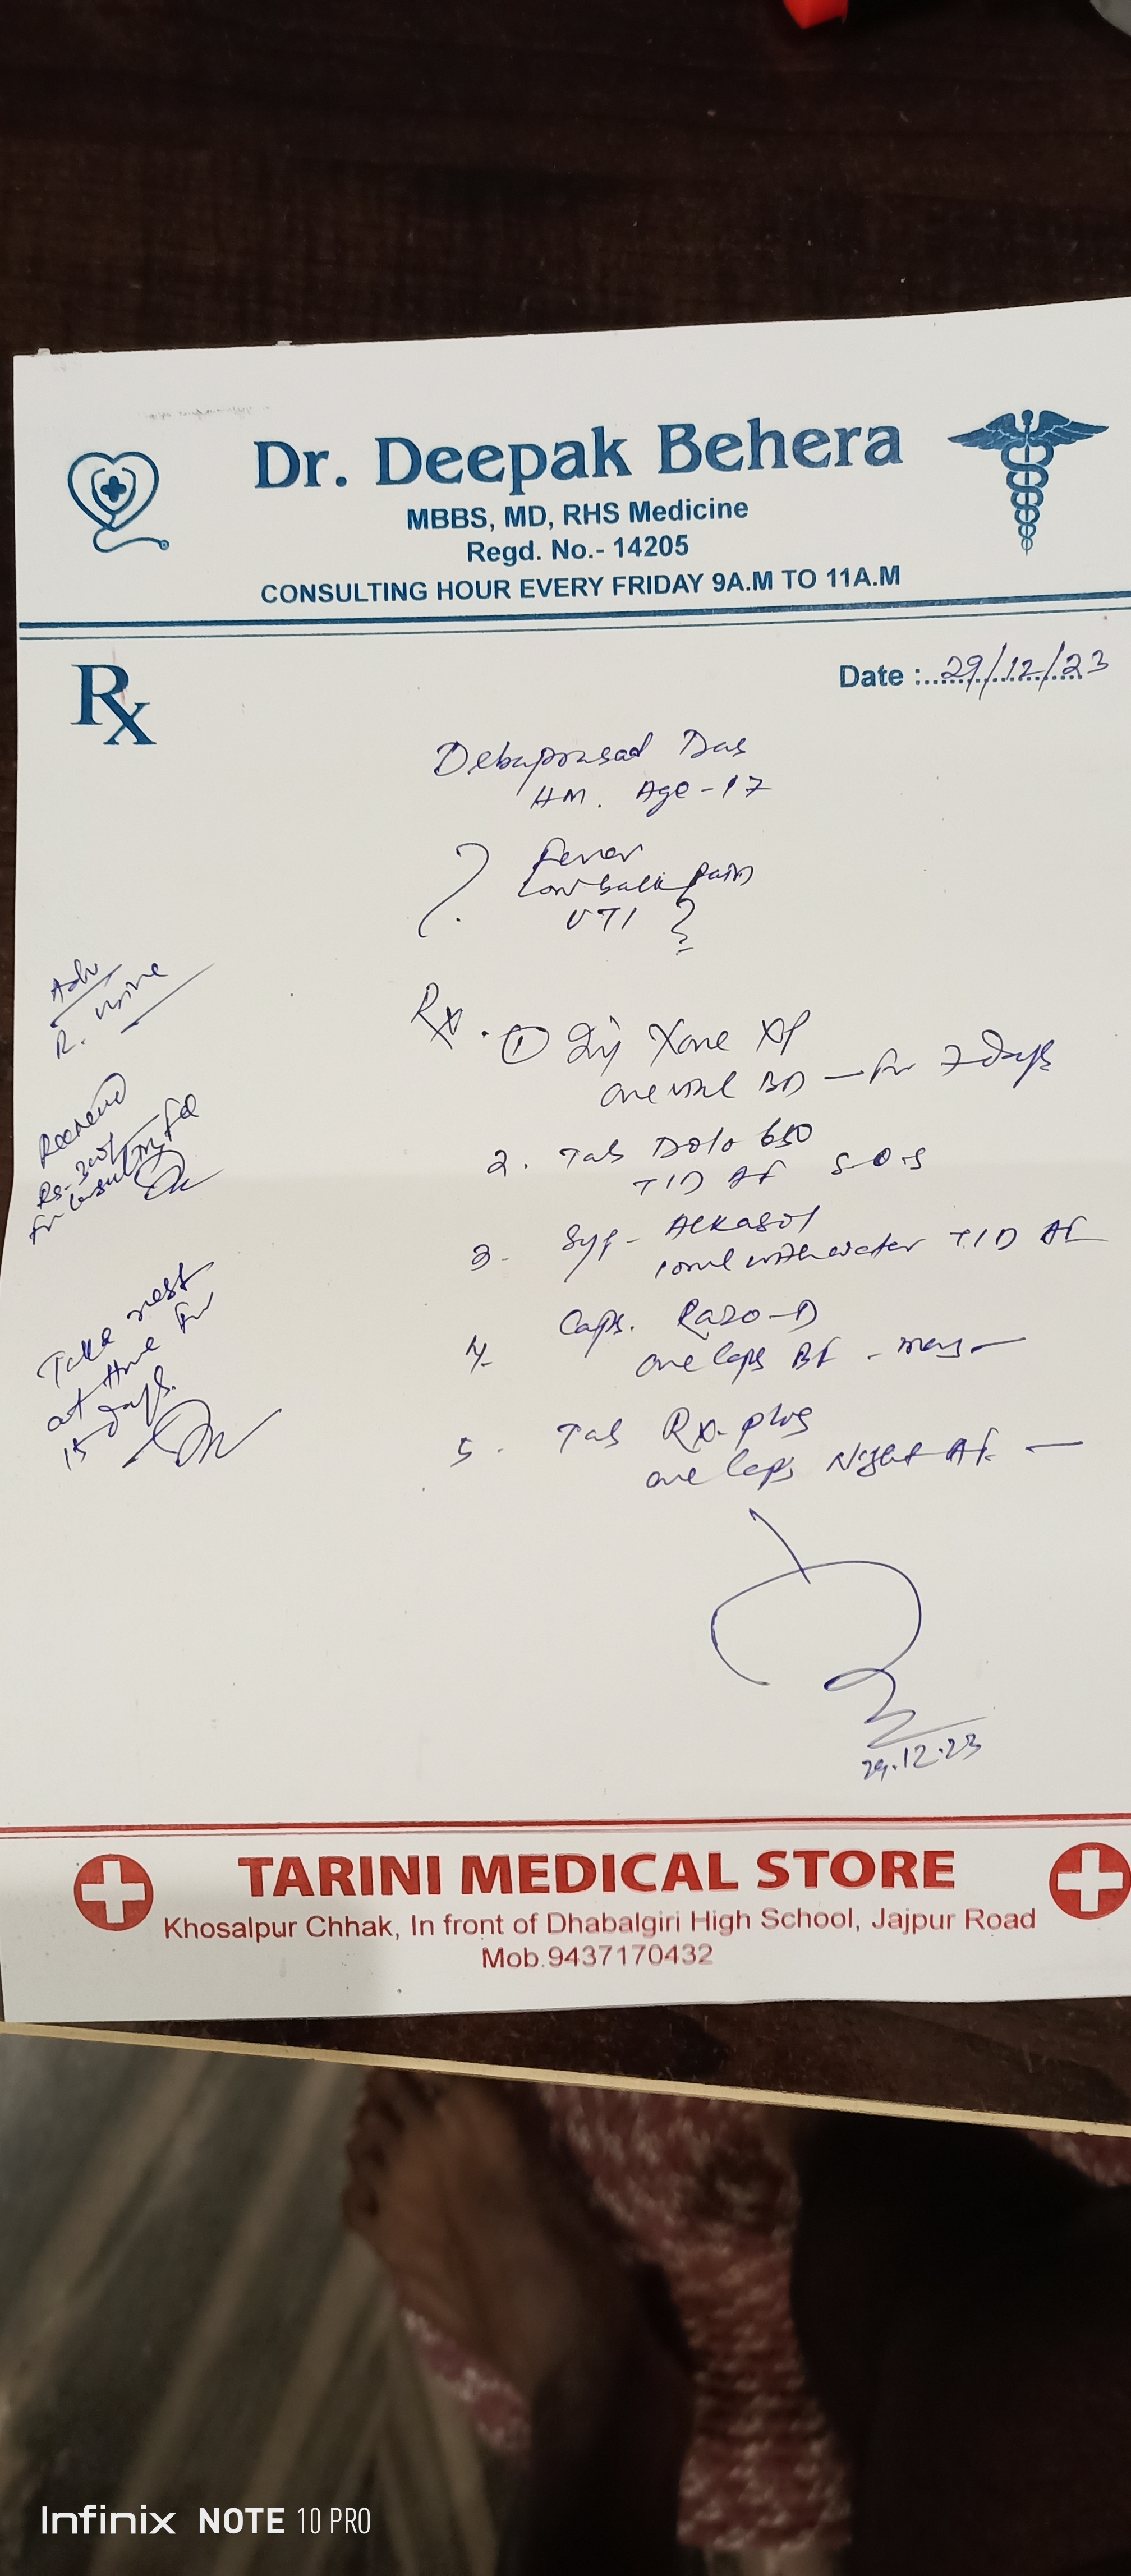 Dr. Deepak Behera
MBBS, MD, RHS Medicine
Regd. No.- 14205
CONSULTING HOUR EVERY FRIDAY 9A.M TO 11A.M
Rx
Date :..29/12/23
Debaprasad Das
HM. Age - 17
? Fever
Low back pain
UTI ?
Adv
R. Urine
Received
Rs. 300/-
for consulting fee
Take rest
at Home for
15 days.
Rx. ① Inj Xone XP
one vial BD — for 7 days
2. Tab Dolo 650
TID AF S.O.S
3- Syp- Alkasol
10ml with water TID AF
4- Caps. Razo-D
one Caps BF -
5. Tab plus
one Caps Night AF. —
29.12.23
TARINI MEDICAL STORE
Khosalpur Chhak, In front of Dhabalgiri High School, Jajpur Road
Mob.9437170432
Infinix NOTE 10 PRO